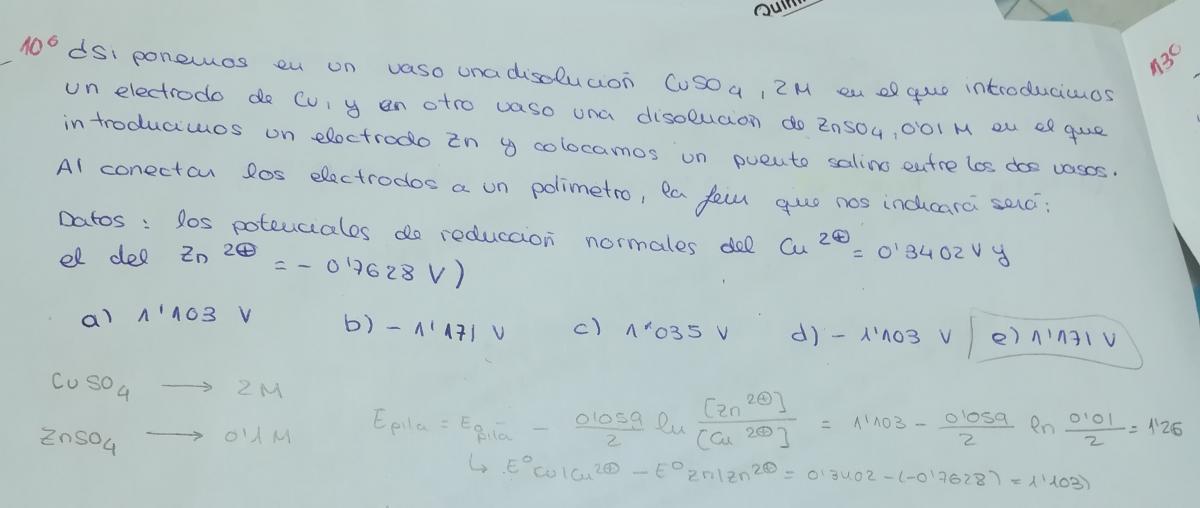 Quím
10⁶ dSi ponemos en un vaso una disolución CuSO₄, 2M en el que introducimos 130
un electrodo de Cu, y en otro vaso una disolución de ZnSO₄, 0'01 M en el que
introducimos un electrodo Zn y colocamos un puente salino entre los dos vasos.
Al conectar los electrodos a un polímetro, la fem que nos indicará será:
Datos: los potenciales de reducción normales del Cu ²⊕ = 0'3402 V y
el del Zn ²⊕ = - 0'7628 V)
a) 1'103 V b) - 1'171 V c) 1'035 V d) - 1'103 V e) 1'171 V
CuSO₄ → 2 M
ZnSO₄ → 0'1 M
Epila = E⁰pila - 0'059/2 ln [Zn ²⊕]/[Cu ²⊕] = 1'103 - 0'059/2 ln 0'01/2 = 1'26
↳ E⁰Cu|Cu²⊕ - E⁰Zn|Zn²⊕ = 0'3402 - (-0'7628) = 1'103)